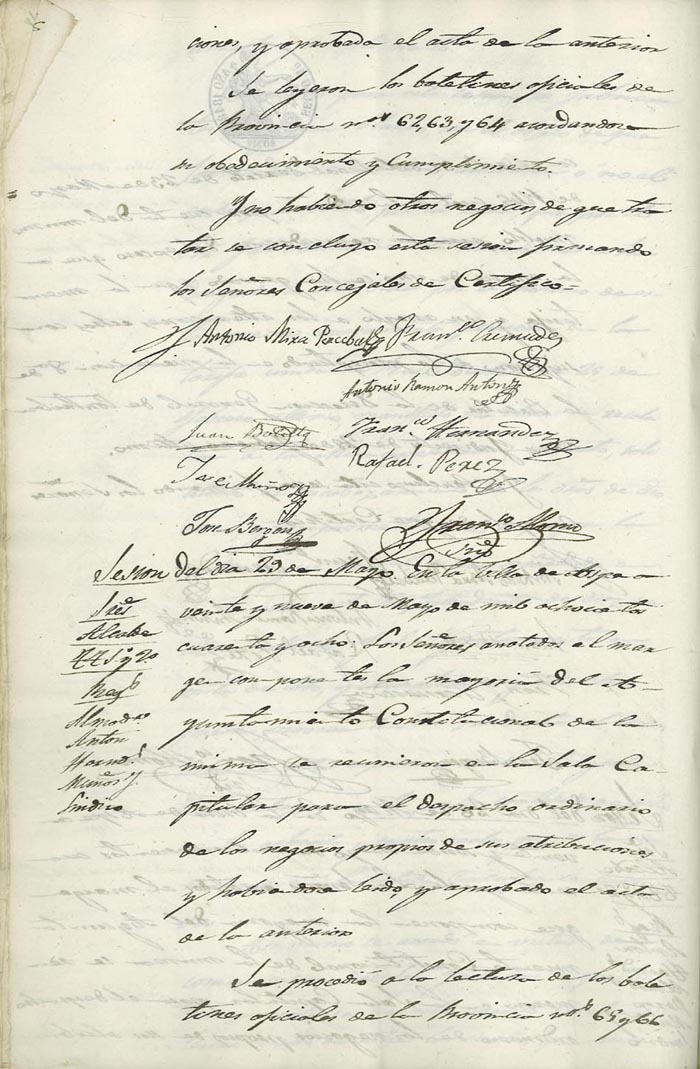 ciones, y aprobada el acta de la anterior
Se leyeron los boletines oficiales de
la Provincia nos. 62, 63, y 64 acordandose
su obedecimiento y Cumplimiento.
Y no habiendo otros negocios de que tra
tar se concluyo esta sesion firmando
los Señores Concejales de Certifico=
Antonio Mira Perceval Franco. Cremades
Antonio Ramon Anton
Juan Franco. Hernandez
Rafael Perez
Jose Muñoz
Jose Franco
Srio
Sesion del dia 29 de Mayo En la Villa de Aspe a
Sres veinte y nueve de Mayo de mil ochocientos
Alcalde cuarenta y ocho: Los Señores anotados al mar
TT 1o y 2o gen componentes la mayoria del A-
Regs yuntamiento Constitucional de la
Almodro
Anton misma se reunieron en la Sala Ca-
Hernd
Muños y pitular para el despacho ordinario
Sindico
de los negocios propios de sus atribuciones
y habiendose leido, y aprobado el acta
de la anterior
Se procedió a la lectura de los bole
tines oficiales de la Provincia nos. 65 y 66